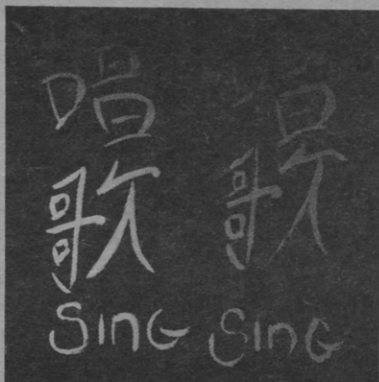 唱 唱
歌 歌
SinG SinG